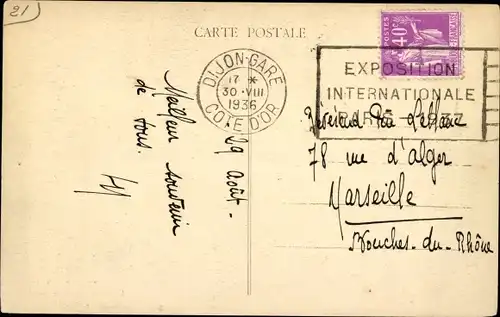 21
CARTE POSTALE
DIJON-GARE
17 *
30 · VIII
1936
COTE D'OR
POSTES
40c
EXPOSITION
INTERNATIONALE
PARIS 1937
29 Août -
Meilleur souvenir
de tous.
Révérend Leblanc
78 rue d'Alger
Marseille
Bouches-du-Rhône